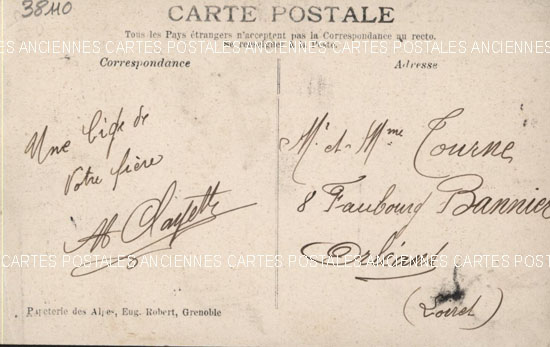 38110
CARTE POSTALE
Tous les Pays étrangers n'acceptent pas la Correspondance au recto.
Se renseigner à la Poste.
CARTES POSTALES ANCIENNES CARTES POSTALES ANCIENNES CARTES POSTALES ANCIENNES
Correspondance
Une bise de
votre
Adresse
Mr et Mme Tourne
8 Faubourg Bannier
Orléans
(Loiret)
CARTES POSTALES ANCIENNES CARTES POSTALES ANCIENNES CARTES POSTALES ANCIENNES
Papeterie des Alpes, Eug. Robert, Grenoble